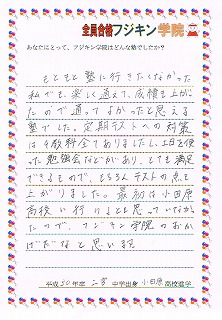 全員合格フジキン学院
あなたにとって、フジキン学院はどんな塾でしたか？
もともと塾に行きたくなかった
私でも、楽しく通えて、成績も上がっ
たので通ってよかったと思える
塾でした。定期テストへの対策
は無料でありましたし、土日を使
った勉強会などがあり、とても満足
できるもので、もちろんテストの点も
上がりました。最初は小田原
高校に行けるとも思っていなかっ
たので、フジキン学院のおか
げだなと思います。
平成30年度 二宮 中学出身 小田原 高校進学